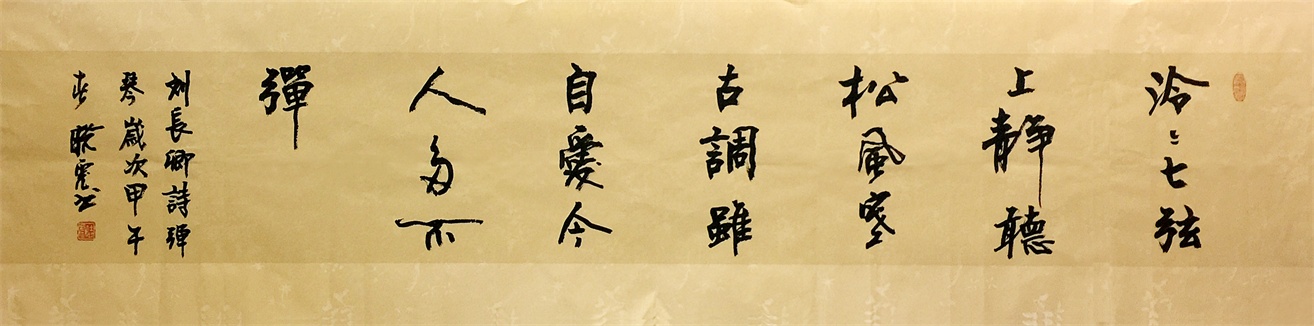 泠〻七弦
上静聽
松風寒
古調雖
自愛今
人多不
彈
刘長卿詩彈
琴歲次甲午